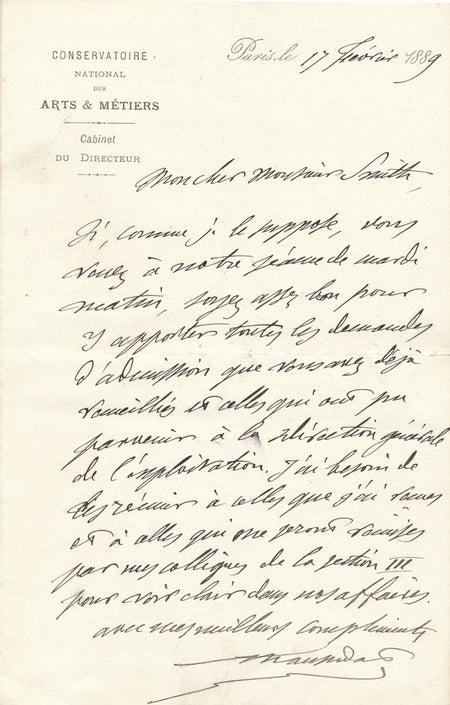 CONSERVATOIRE
NATIONAL
DES
ARTS & MÉTIERS
Cabinet
DU DIRECTEUR
Paris, le 17 Février 1889
Mon cher Monsieur Smith,
Si, comme je le suppose, vous
venez à notre séance de mardi
matin, soyez assez bon pour
y apporter toutes les demandes
d'admission que vous avez déjà
recueillies et celles qui ont pu
parvenir à la direction générale
de l'exploitation. J'ai besoin de
les réunir à celles que j'ai reçues
et à celles qui me seront remises
par mes collègues de la section III
pour voir clair dans nos affaires.
avec mes meilleurs compliments